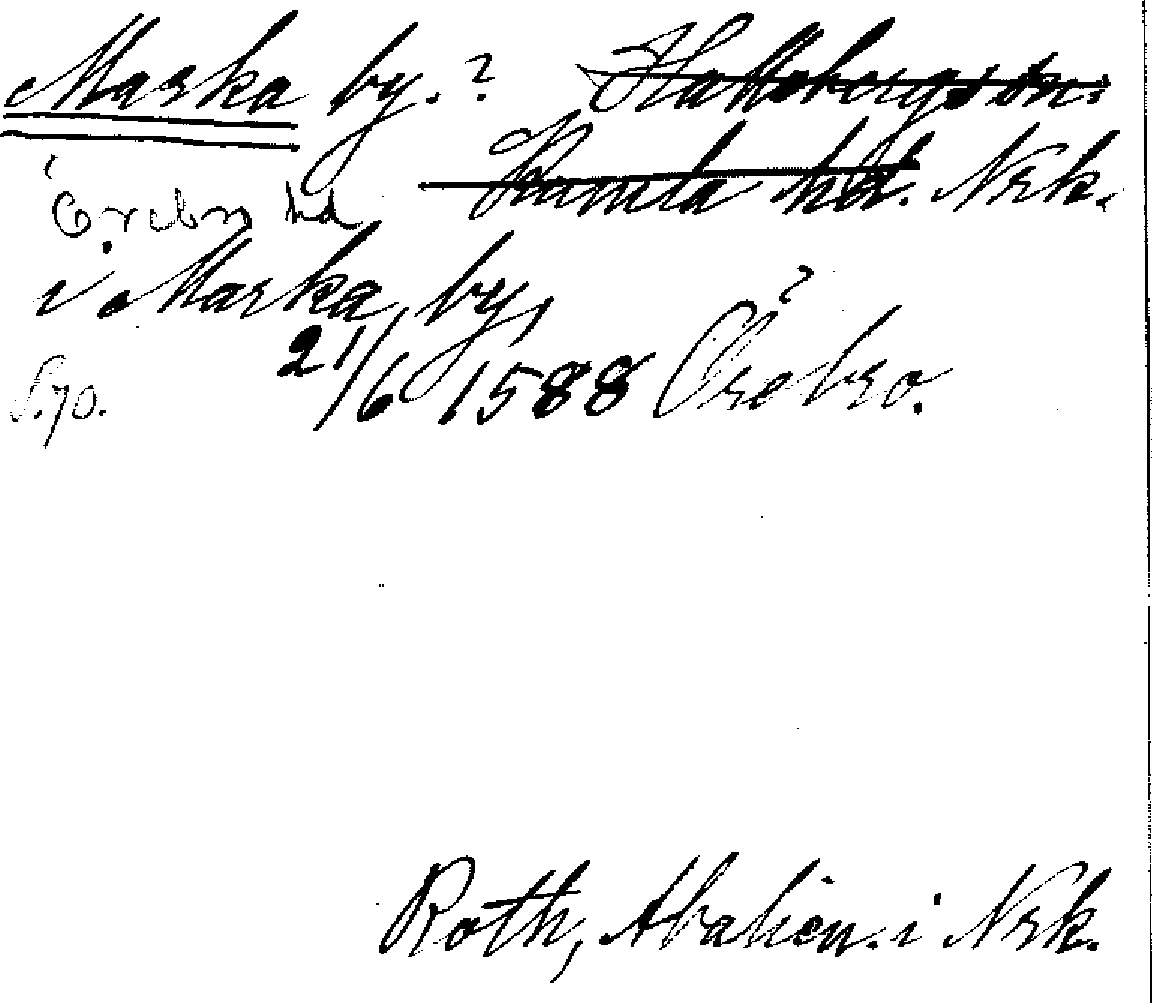 Marka by. ? Hallsbergs sn.
Kumla hd. Nrk.
i Örebro hd
i Marka by,
S. 70. 21/6 1588 Örebro. ?
Roth, Abalien. i Nrk.